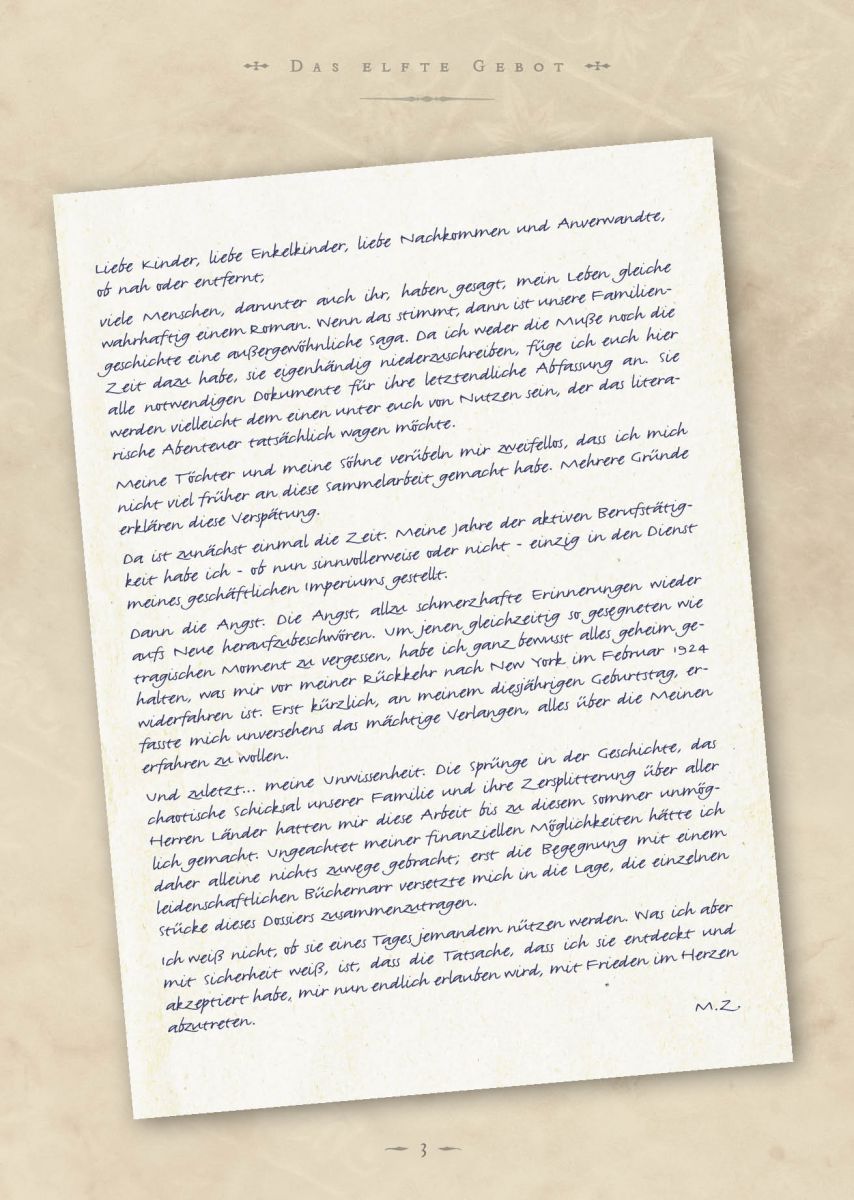 Das elfte Gebot
Liebe Kinder, liebe Enkelkinder, liebe Nachkommen und Anverwandte,
ob nah oder entfernt,
viele Menschen, darunter auch ihr, haben gesagt, mein Leben gleiche
wahrhaftig einem Roman. Wenn das stimmt, dann ist unsere Familien-
geschichte eine außergewöhnliche Saga. Da ich weder die Muße noch die
Zeit dazu habe, sie eigenhändig niederzuschreiben, füge ich euch hier
alle notwendigen Dokumente für ihre letztendliche Abfassung an. Sie
werden vielleicht dem einen unter euch von Nutzen sein, der das litera-
rische Abenteuer tatsächlich wagen möchte.
Meine Töchter und meine Söhne verübeln mir zweifellos, dass ich mich
nicht viel früher an diese Sammelarbeit gemacht habe. Mehrere Gründe
erklären diese Verspätung.
Da ist zunächst einmal die Zeit. Meine Jahre der aktiven Berufstätig-
keit habe ich - ob nun sinnvollerweise oder nicht - einzig in den Dienst
meines geschäftlichen Imperiums gestellt.
Dann die Angst. Die Angst, allzu schmerzhafte Erinnerungen wieder
aufs Neue heraufzubeschwören. Um jenen gleichzeitig so gesegneten wie
tragischen Moment zu vergessen, habe ich ganz bewusst alles geheim ge-
halten, was mir vor meiner Rückkehr nach New York im Februar 1924
widerfahren ist. Erst kürzlich, an meinem diesjährigen Geburtstag, er-
fasste mich unversehens das mächtige Verlangen, alles über die Meinen
erfahren zu wollen.
Und zuletzt... meine Unwissenheit. Die Sprünge in der Geschichte, das
chaotische Schicksal unserer Familie und ihre Zersplitterung über aller
Herren Länder hatten mir diese Arbeit bis zu diesem Sommer unmög-
lich gemacht. Ungeachtet meiner finanziellen Möglichkeiten hätte ich
daher alleine nichts zuwege gebracht; erst die Begegnung mit einem
leidenschaftlichen Büchernarr versetzte mich in die Lage, die einzelnen
Stücke dieses Dossiers zusammenzutragen.
Ich weiß nicht, ob sie eines Tages jemandem nützen werden. Was ich aber
mit Sicherheit weiß, ist, dass die Tatsache, dass ich sie entdeckt und
akzeptiert habe, mir nun endlich erlauben wird, mit Frieden im Herzen
abzutreten.
M.Z.
3